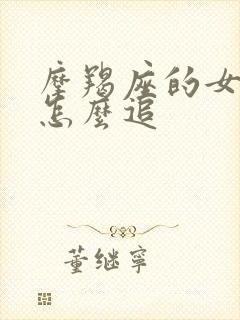 摩羯座的女
怎麼追
董继寧